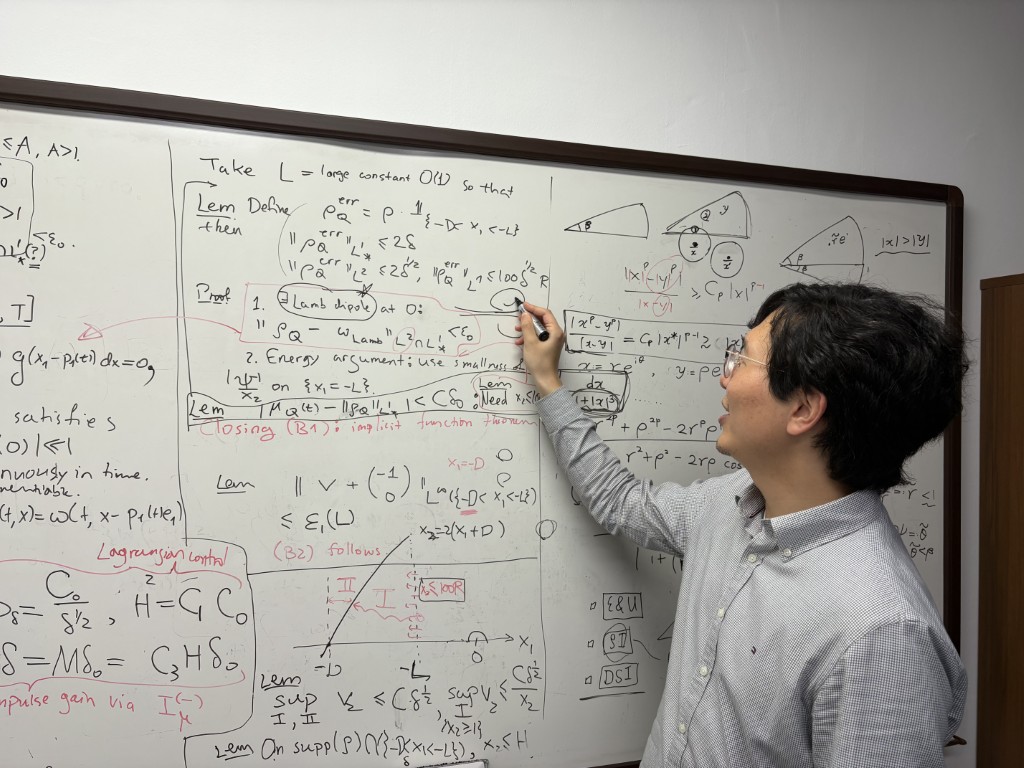 ≤ A, A>1.
>1
≤ε₀.
, T]
g(x₁-p₁(t))dx=0,
satisfies
(0)|≪1
nuously in time.
(t,x)=ω(t, x-p₁(t)e₁)
Lagrangian control
= C₀/δ^{1/2}, H = C₁² C₀
δ = Mδ₀ = C₃Hδ₀
impulse gain via I_μ^{(-)}
Take L = large constant O(1) so that
Lem Define ρ_Q^{err} = ρ · 1_{{-D<x₁<-L}}
then
‖ρ_Q^{err}‖_{L¹_*} ≤ 2δ
‖ρ_Q^{err}‖_{L²} ≤ 2δ^{1/2}, ‖ρ_Q^{err}‖_{L¹} ≤ 100δ^{1/2}R
Proof 1. ∃ Lamb dipole at 0:
‖ρ_Q - ω_{Lamb}‖_{L²∩L¹_*} ≤ε₀
2. Energy argument: use smallness of
|ψ|/x₂ on {x₁=-L}.
Lem |μ_Q(t) - ‖ρ_Q‖_{L¹_*}| < Cδ₀
Lem
Need
Closing (B1): implicit function theorem
x₁=-D
Lem ‖V + (-1 0)‖_{L^∞({-D<x₁<-L})}
≤ ε₁(L)
x₂=2(x₁+D)
(B2) follows
II
I
x₂≤100R
-D
-L
0
x₁
Lem
sup_{I, II} V₂ ≤ Cδ^{1/2}, sup_{I {x₂≥1}} V₂ ≤ Cδ^{1/2}/x₂
Lem On supp(ρ)∩{-D<x₁<-L}, x₂≤H
θ
Q
y
x
x
β
β
|x|>|y|
|x^p-y^p|/|x-y| ≥ C_p|x|^{p-1}
|x^p-y^p|/|x-y| = C_p|x*|^{p-1}
x=re^{iθ}, y=ρe
dx/1+|x|³
+ρ^{2p}-2r^pρ
r²+ρ²-2rρ cos
E&U
SI
DSI